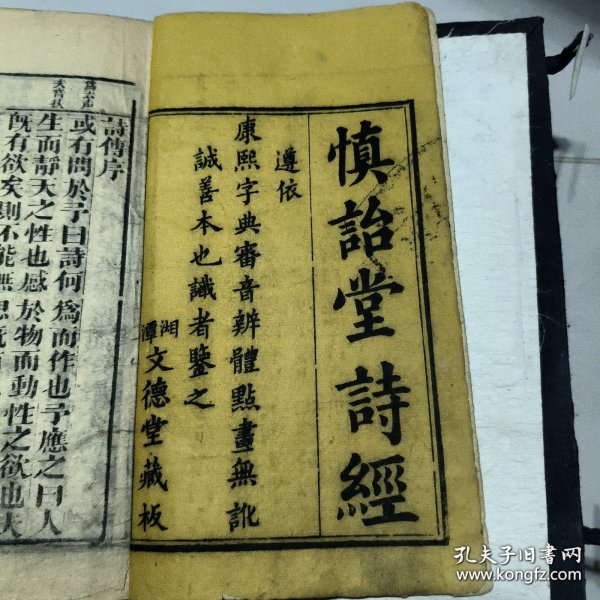 慎詒堂詩經
遵依
康熙字典審音辨體點畫無訛
誠善本也識者鑒之
湘潭文德堂藏板
詩傳序
或有問於予曰詩何爲而作也予應之曰人
生而靜天之性也感於物而動性之欲也夫
既有欲矣則不能無思既
孔夫子旧书网
www.kongfz.com